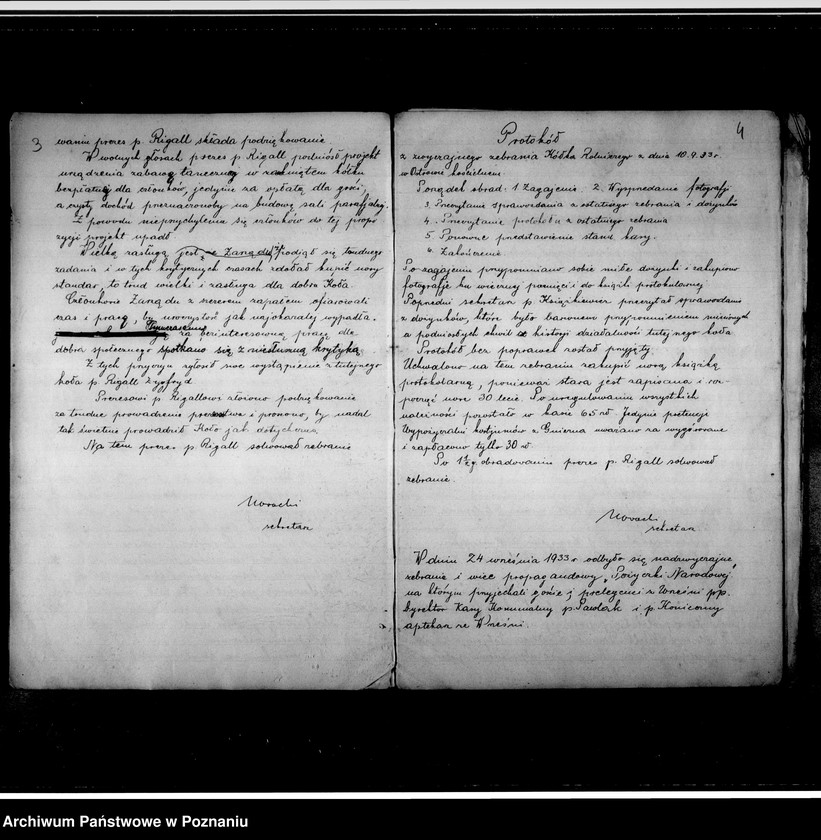 3
waniu prezes p. Rigall składa podziękowanie
W wolnych głosach prezes p. Rigall podniósł projekt
urządzenia zabawy tanecznej w zamkniętem kółku
bezpłatnej dla członków, jedynie za opłatą dla gości,
a czysty dochód przeznaczonoby na budowę sali parafjalnej.
Z powodu nieprzychylenia się członków do tej propo
zycji projekt upadł
Wielką zasługą jest, że Zarząd podjął się trudnego
zadania i w tych krytycznych czasach zdołał kupić nowy
standar, to trud wielki i zasługa dla dobra Koła.
Członkowie Zarządu z szczerem zapałem ofiarowali
czas i pracę, by uroczystość jak najokazalej wypadła.
Tymczasem za bezinteresowną pracę dla
dobra społecznego spotkano się z niesłuszną krytyką
Z tych przyczyn zgłosił swe wystąpienie z tutejszego
koła p. Rigall Zygfryd
Prezesowi p. Rigallowi złożono podziękowanie
za trudne prowadzenie prezesostwa i proszono, by nadal
tak świetnie prowadził Koło jak dotychczas.
Na tem prezes p. Rigall solwował zebranie
Noracki
sekretarz
4
Protokół
z zwyczajnego zebrania Kółka Rolniczego z dnia 10.9.33 r.
w Ostrowie kościelnem
Porządek obrad: 1 Zagajenie 2. Wysprzedanie fotografji
3. Przeczytanie sprawozdania z ostatniego zebrania i dożynków
4. Przeczytanie protokółu z ostatniego zebrania
5. Ponowne przedstawienie stanu kasy.
6. Zakończenie.
Po zagajeniu przypomniano sobie miłe dożynki i zakupiono
fotografje ku wiecznej pamięci i do książki protokularnej
Poprzedni sekretarz p. Książkiewicz przeczytał sprawozdanie
z dożynków, które było barwnem przypomnieniem minionych
a podniosłych chwil z historji działalności tutejszego koła
Protokół bez poprawek został przyjęty.
Uchwalono na tem zebraniu zakupić nową książkę
protokularną, ponieważ stara jest zapisana i roz-
począć nowe 30 lecie. Po uregulowaniu wszystkich
należności pozostało w kasie 65 zł. Jedynie pretensje
Wypożyczalni kostjumów z Gniezna uważano za wygórowane
i zapłacono tylko 30 zł.
Po 1½ g. obradowaniu prezes p. Rigall solwował
zebranie.
Noracki
sekretarz
W dniu 24 września 1933 r odbyło się nadzwyczajne
zebranie i wiec propagandowy "Pożyczki Narodowej"
na którym przyjechali goście i prelegenci z Wrześni pp.
Dyrektor Kasy Komunalnej p. Pawlak i p. Konieczny
aptekarz ze Wrześni.
Archiwum Państwowe w Poznaniu